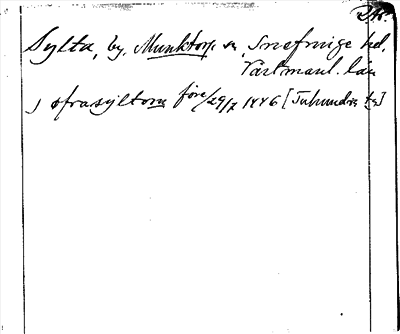 Sylta, by, Munktorp sn, Snefringe hd,
Västmanl. län
j øfrasyltone före 29/7 1446 [Tuhundra hd]